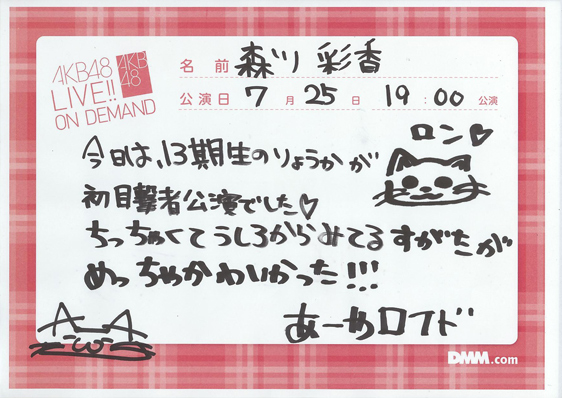 AKB48
LIVE!!
ON DEMAND
AKB
48
名 前 森川 彩香
公演日 7 月 25 日 19 : 00 公演
ロン♡
今日は、13期生のりょうかが
初目撃者公演でした♡
ちっちゃくてうしろからみてるすがたが
めっちゃかわいかった!!!
あーやロイド
DMM.com